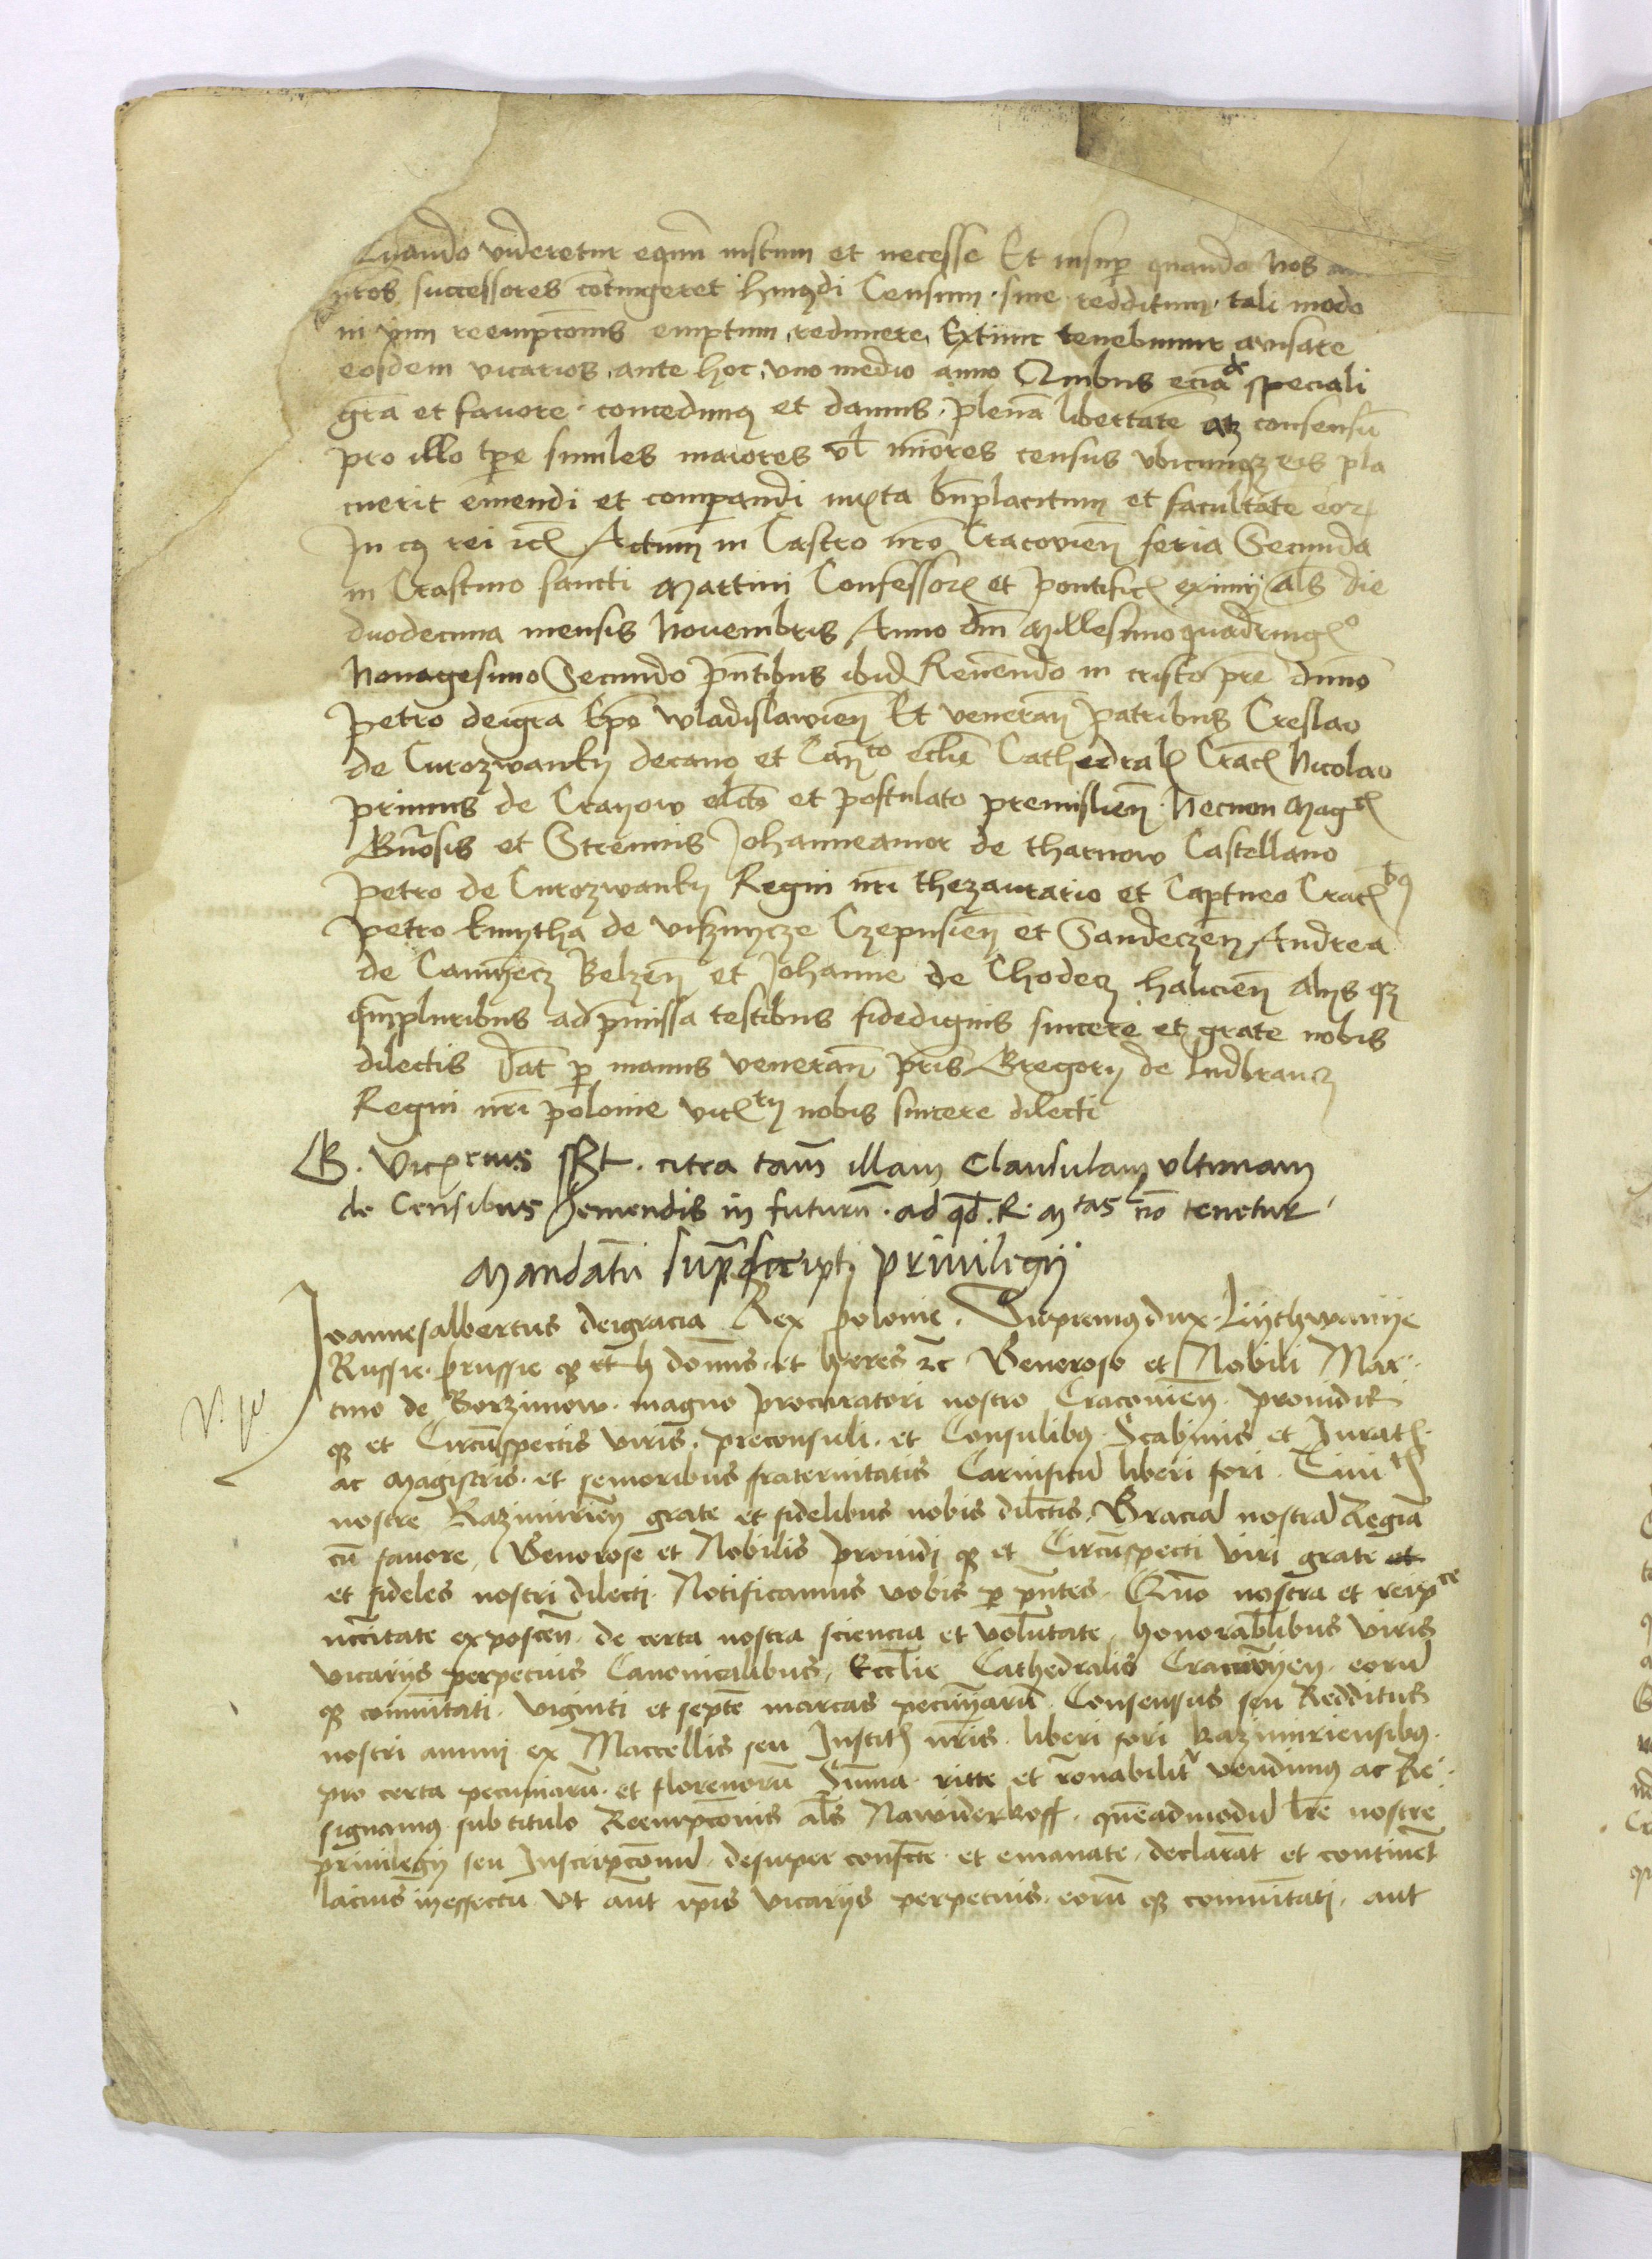 Quando videretur equu iustum et necesse Et insup quando nos
nros successores cotingeret hmodi Censum siue redditum tali modo
in vim reempcois emptum redimere Extunc tenebimur auisare
eosdem vicarios ante hoc uno medio anno Quibus ecia de speciali
gra et fauore concedimus et damus plena libertate atq consensu
pro illo tpe similes maiores vl miores census vbicunq eis pla
cuerit emendi et compandi iuxta bnplacitum et facultate eor
In cuius rei Actum in Castro nro Cracouien feria Secunda
in Crastino sancti Martini Confessor et pontific eximij als die
duodecima mensis Nouembris Anno dni Millesimo quadringo
Nonagesimo Secundo pntibus ibid Reuendo in cristo pre dnno
Petro deigra Epo Wladislawien Et veneran patribus Creslao
de Curozwanky decano et Canto eclie Cathedral Crac Nicolao
primus de Crayow elcto et postulato premislien Necnon Magc
Gnosis et Strenuis Johanneamor de tharnow Castellano
Petro de Curozwanky Regni nri thezaurario et Captneo Crac
Petro kmytha de visznycze Czepusien et Sandeczen Andrea
de Camyenecz Belzen et Johanne de Chodecz halicien Alijs q
qmpluribus ad pmissa testibus fidedignis sincere et grate nobis
dilectis Dat p manus veneran pris Gregorij de ludbrancz
Regni nri polonie vicrij nobis sincere dilecti
G. Vicrius sst. citra tam illam clausulam vltimam
de Censibus emendis in futuru. ad qd. R. Mtas no tenetur
Mandatu supscripti priuilegij
Joannesalbertus deigracia Rex polonie. Supremus dux Lijthwanije
Russie. prussie q etc h domns et heres 2c Generoso et Nobili Mar
tino de Gorzinow. magno procuratori nostro Cracouien. prouidis
q et Circuspectis viris. preconsuli. et Consulibus Scabinis et Jurat
ac Magistris. et senioribus fraternitatis Carnificu liberi fori. Ciuit
nostre Kazimirien grate et fidelibus nobis dilectis, Gracia nostra Regia
cu fauore, Generose et Nobilis prouidi q et Circuspecti viri grate et
et fideles nostri dilecti. Notificamus vobis p pntes. Quo nostra et reipce
nccitate exposcen. de certa nostra sciencia et volutate, honorablibus viris
vicarijs perpetuis Canonicalibus, Ecclie Cathedralis Cracouijen. eoru
q comunitati. viginti et septe marcas pecuniaru. Consensus seu Redditus
nostri annui ex Maccellis seu Instit nris. liberi fori kazimiriensibus.
pro certa pecuniaru. et florenoru Suma. ritte et ronabiliter vendimus ac Re
signamus sub titulo Reempconis als Nawiderkoff. queadmodu lre nostre
priuilegij seu Inscripconu. desuper confecte et emanate. declarat et continet
lacius in effectu Vt aut ipis vicarijs perpetuis. eoru q comunitati. aut